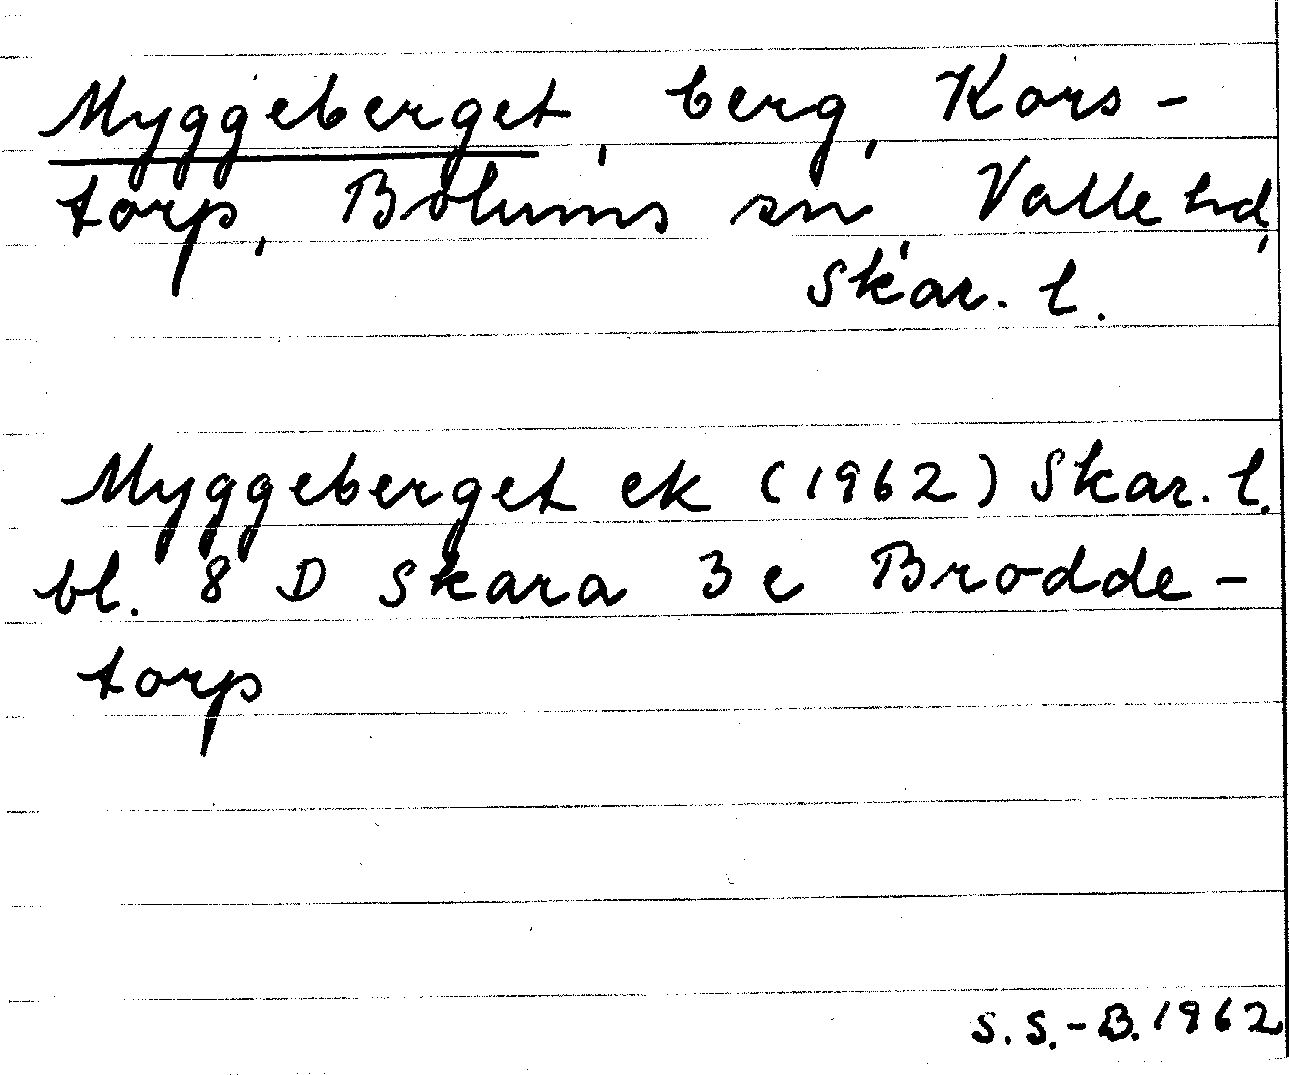 Myggeberget, berg, Kors-
torp, Bolums sn, Valle hd,
Skar. l.
Myggeberget ek (1962) Skar. l.
bl. 8 D Skara 3 e Brodde-
torp
S. S.-B. 1962